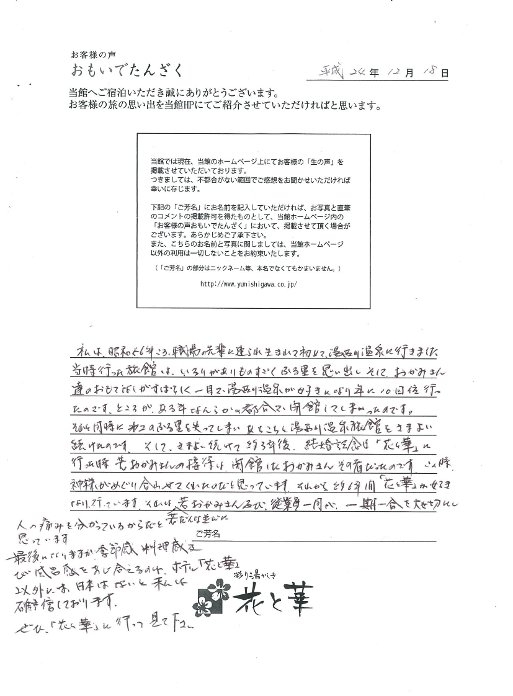 お客様の声
おもいでたんざく
平成 24年 12月 18日
当館へご宿泊いただき誠にありがとうございます。
お客様の旅の思い出を当館HPにてご紹介させていただければと思います。
当館では現在、当館のホームページ上にてお客様の「生の声」を
掲載させていただいております。
つきましては、不都合がない範囲でご感想をお聞かせいただければ
幸いに存じます。
下記の「ご芳名」にお名前を記入していただければ、お写真と直筆
のコメントの掲載許可を得たものとして、当館ホームページ内の
「お客様の声おもいでたんざく」において、掲載させて頂く場合が
ございます。あらかじめご了承下さい。
また、こちらのお名前と写真に関しましては、当館ホームページ
以外の利用は一切しないことをお約束いたします。
(「ご芳名」の部分はニックネーム等、本名でなくてもかまいません。)
http://www.yunishigawa.co.jp/
私は、昭和56年ころ、職場の先輩に連られ生まれて初めて湯西川温泉に行きました
当時行った旅館は、いろりがありものすごくふる里を思い出し そして、おかみさん
達のおもてなしがすばらしく一目で湯西川温泉が好きになり年に10回位行っ
たのです。ところが、ある年なんらかの都合で閉館してしまったのです。
それと同時に私のふる里を失ってしまい
湯西川温泉旅館をさまよい
続けたのです。そして、さまよい続けて約3年後、結婚記念日「花と華」に
行った時 若おかみさんの接待は 閉館したおかみさんその者だったのです この時、
神様がめぐり合わせてくれたのだと思っています それから
年間「花と華」がすきに
なり行っています それは、若おかみさん及び、従業員一同が、一期一会を大切にし
人の痛みを分かっているからだと
思っています
ご芳名
最後になりますが季節感 料理感及
び風呂感をあじ合えるのは、ホテル「花と華」
以外には、日本はないと私は
確信しております。
ぜひ、「花と華」に行って見て下さい。
花と華